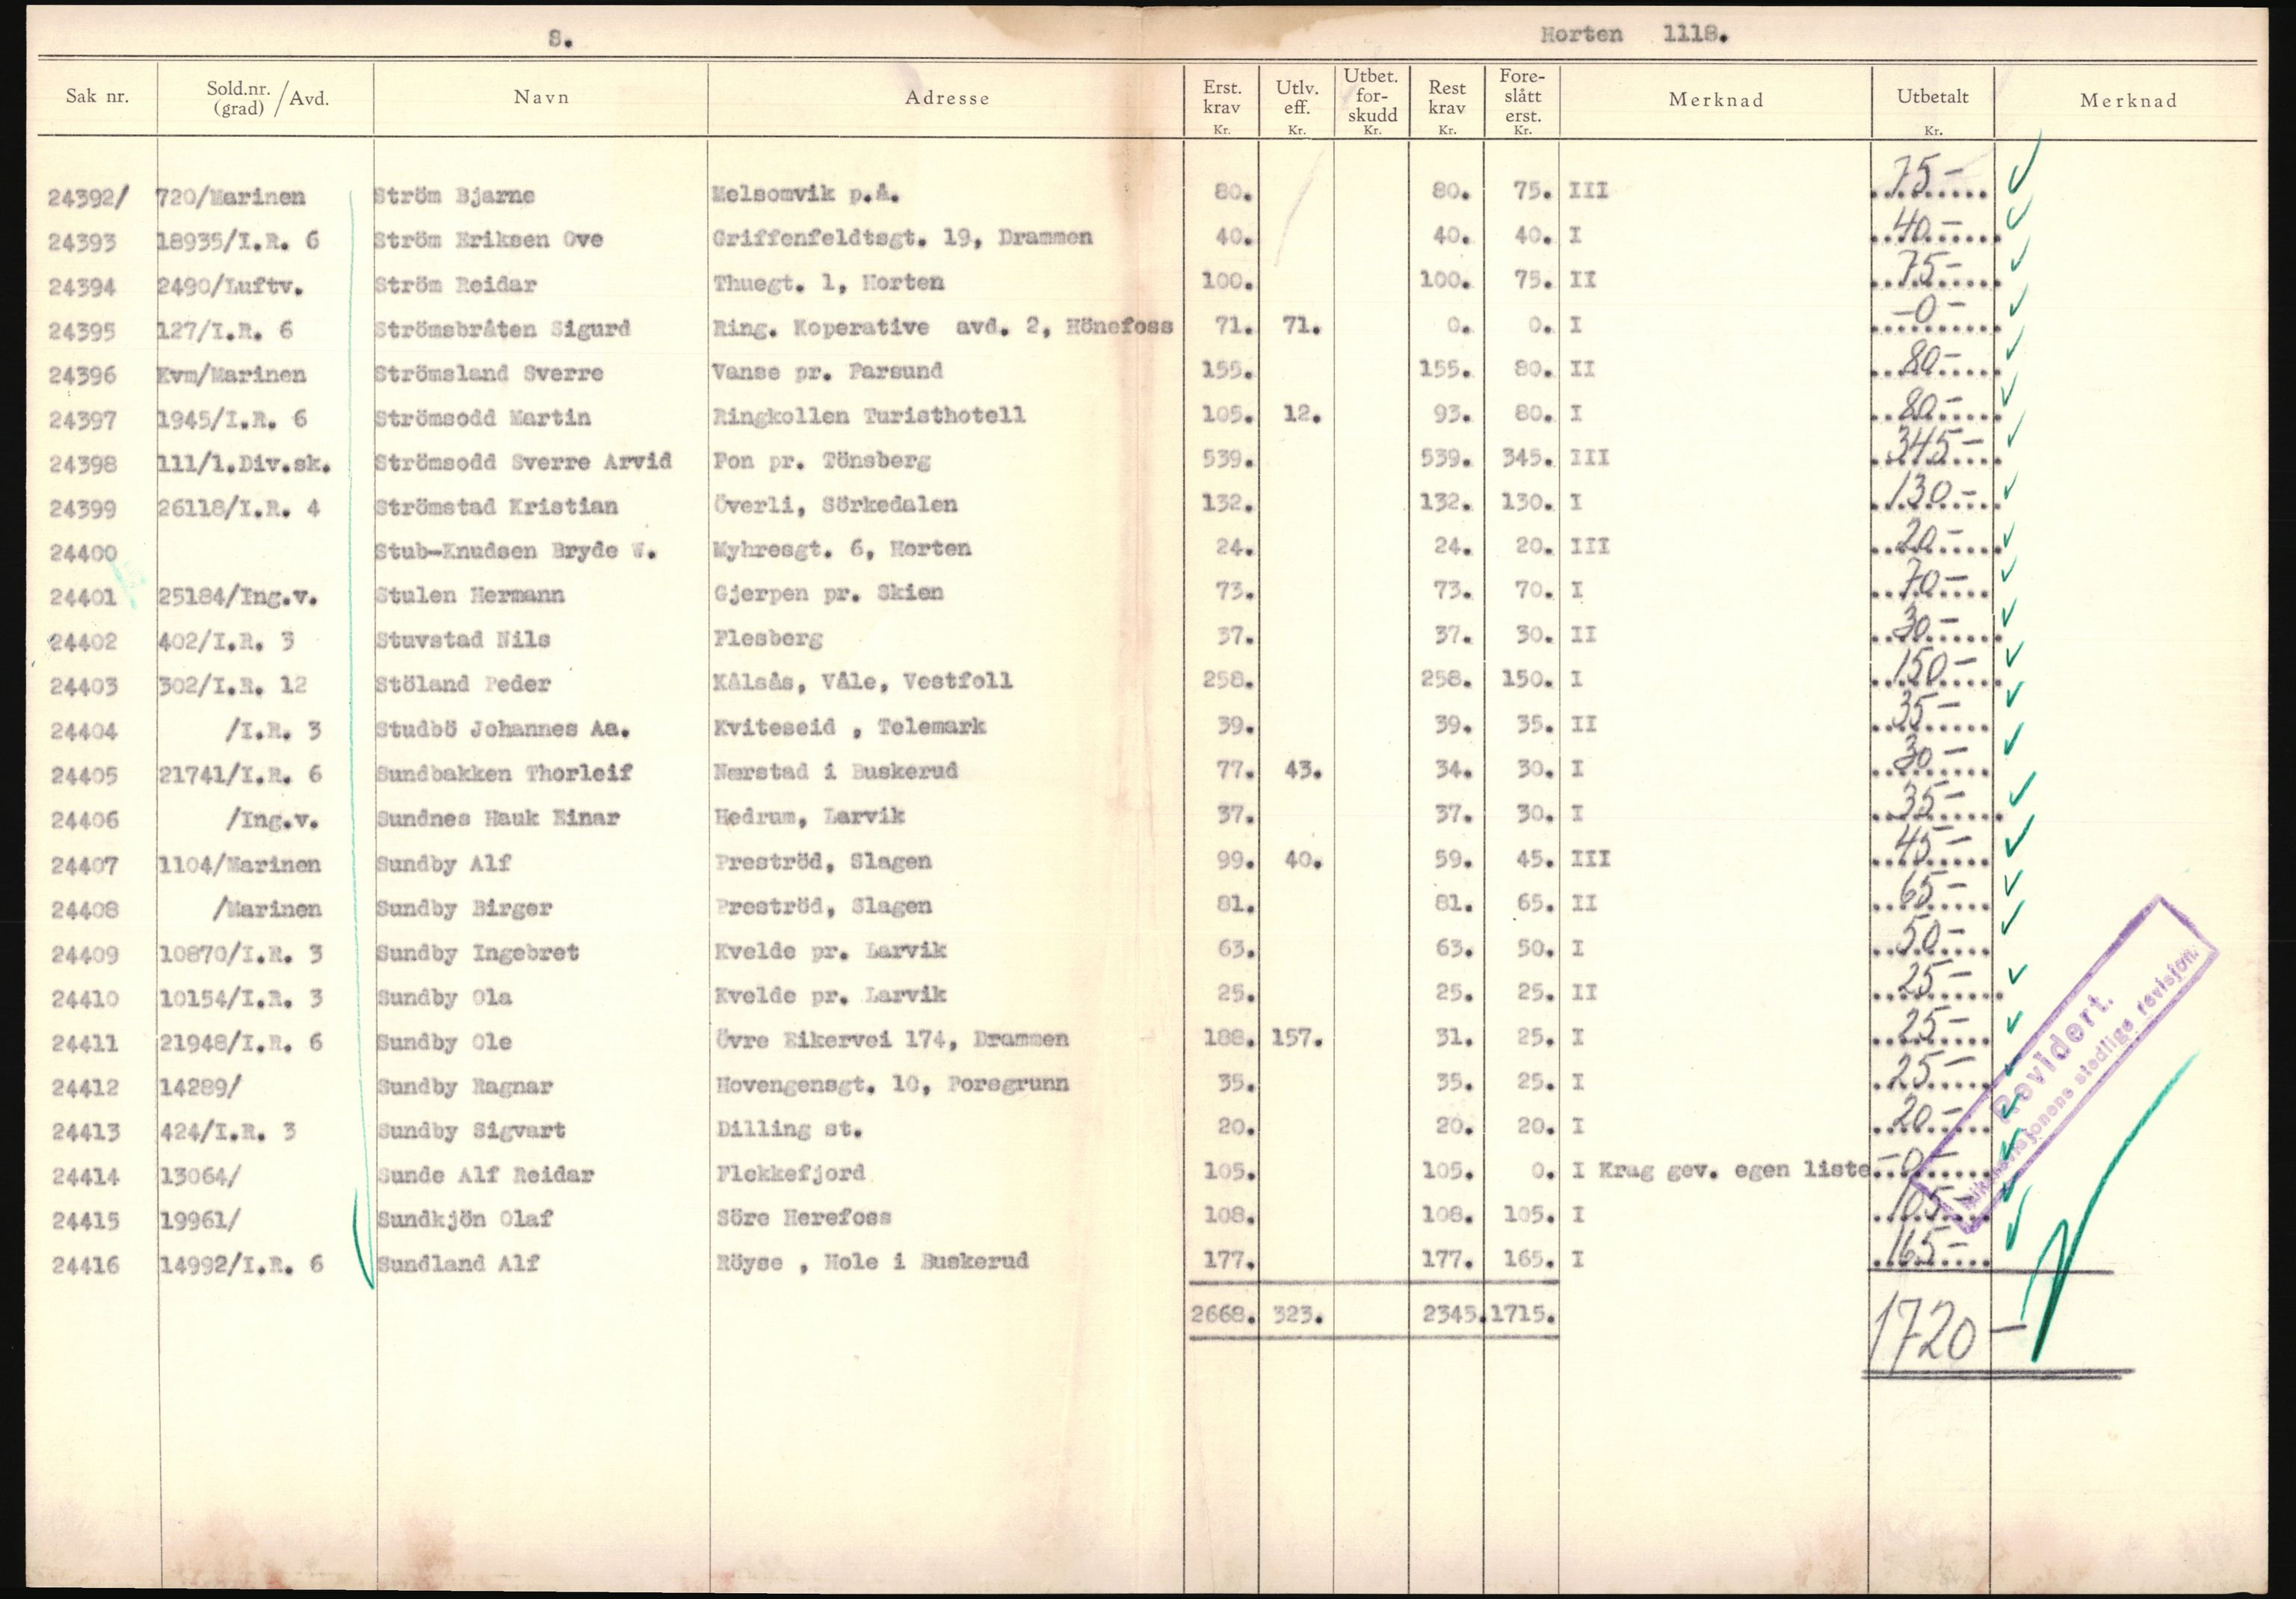 S. Horten 1118.
Sak nr. Sold.nr. (grad) / Avd. Navn Adresse Erst. krav Kr. Utlv. eff. Kr. Utbet. for- skudd Kr. Rest krav Kr. Fore- slått erst. Kr. Merknad Utbetalt Kr. Merknad
24392/ 720/Marinen Ström Bjarne Melsomvik p.å. 80. 80. 75. III 75-
24393 18935/I.R. 6 Ström Eriksen Ove Griffenfeldtsgt. 19, Drammen 40. 40. 40. I 40-
24394 2490/Luftv. Ström Reidar Thuegt. 1, Horten 100. 100. 75. II 75-
24395 127/I.R. 6 Strömsbråten Sigurd Ring. Koperative avd. 2, Hönefoss 71. 71. 0. 0. I -0-
24396 Kvm/Marinen Strömsland Sverre Vanse pr. Farsund 155. 155. 80. II 80-
24397 1945/I.R. 6 Strömsodd Martin Ringkollen Turisthotell 105. 12. 93. 80. I 80-
24398 111/1.Div.sk. Strömsodd Sverre Arvid Fon pr. Tönsberg 539. 539. 345. III 345-
24399 26118/I.R. 4 Strömstad Kristian Överli, Sörkedalen 132. 132. 130. I 130-
24400 Stub-Knudsen Bryde W. Myhresgt. 6, Horten 24. 24. 20. III 20-
24401 25184/Ing.v. Stulen Hermann Gjerpen pr. Skien 73. 73. 70. I 70-
24402 402/I.R. 3 Stuvstad Nils Flesberg 37. 37. 30. II 30-
24403 302/I.R. 12 Stöland Peder Kålsås, Våle, Vestfoll 258. 258. 150. I 150-
24404 /I.R. 3 Studbö Johannes Aa. Kviteseid , Telemark 39. 39. 35. II 35-
24405 21741/I.R. 6 Sundbakken Thorleif Nærstad i Buskerud 77. 43. 34. 30. I 30-
24406 /Ing.v. Sundnes Hauk Einar Hedrum, Larvik 37. 37. 30. I 35-
24407 1104/Marinen Sundby Alf Preströd, Slagen 99. 40. 59. 45. III 45-
24408 /Marinen Sundby Birger Preströd, Slagen 81. 81. 65. II 65-
24409 10870/I.R. 3 Sundby Ingebret Kvelde pr. Larvik 63. 63. 50. I 50-
24410 10154/I.R. 3 Sundby Ola Kvelde pr. Larvik 25. 25. 25. II 25-
24411 21948/I.R. 6 Sundby Ole Övre Eikervei 174, Drammen 188. 157. 31. 25. I 25-
24412 14289/ Sundby Ragnar Hovengensgt. 10, Porsgrunn 35. 35. 25. I 25-
24413 424/I.R. 3 Sundby Sigvart Dilling st. 20. 20. 20. I 20-
24414 13064/ Sunde Alf Reidar Flekkefjord 105. 105. 0. I Krag gev. egen liste -0-
24415 19961/ Sundkjön Olaf Söre Herefoss 108. 108. 105. I 105-
24416 14992/I.R. 6 Sundland Alf Röyse , Hole i Buskerud 177. 177. 165. I 165-
2668. 323. 2345. 1715. 1720-
Revidert.
stedlige revisjon.